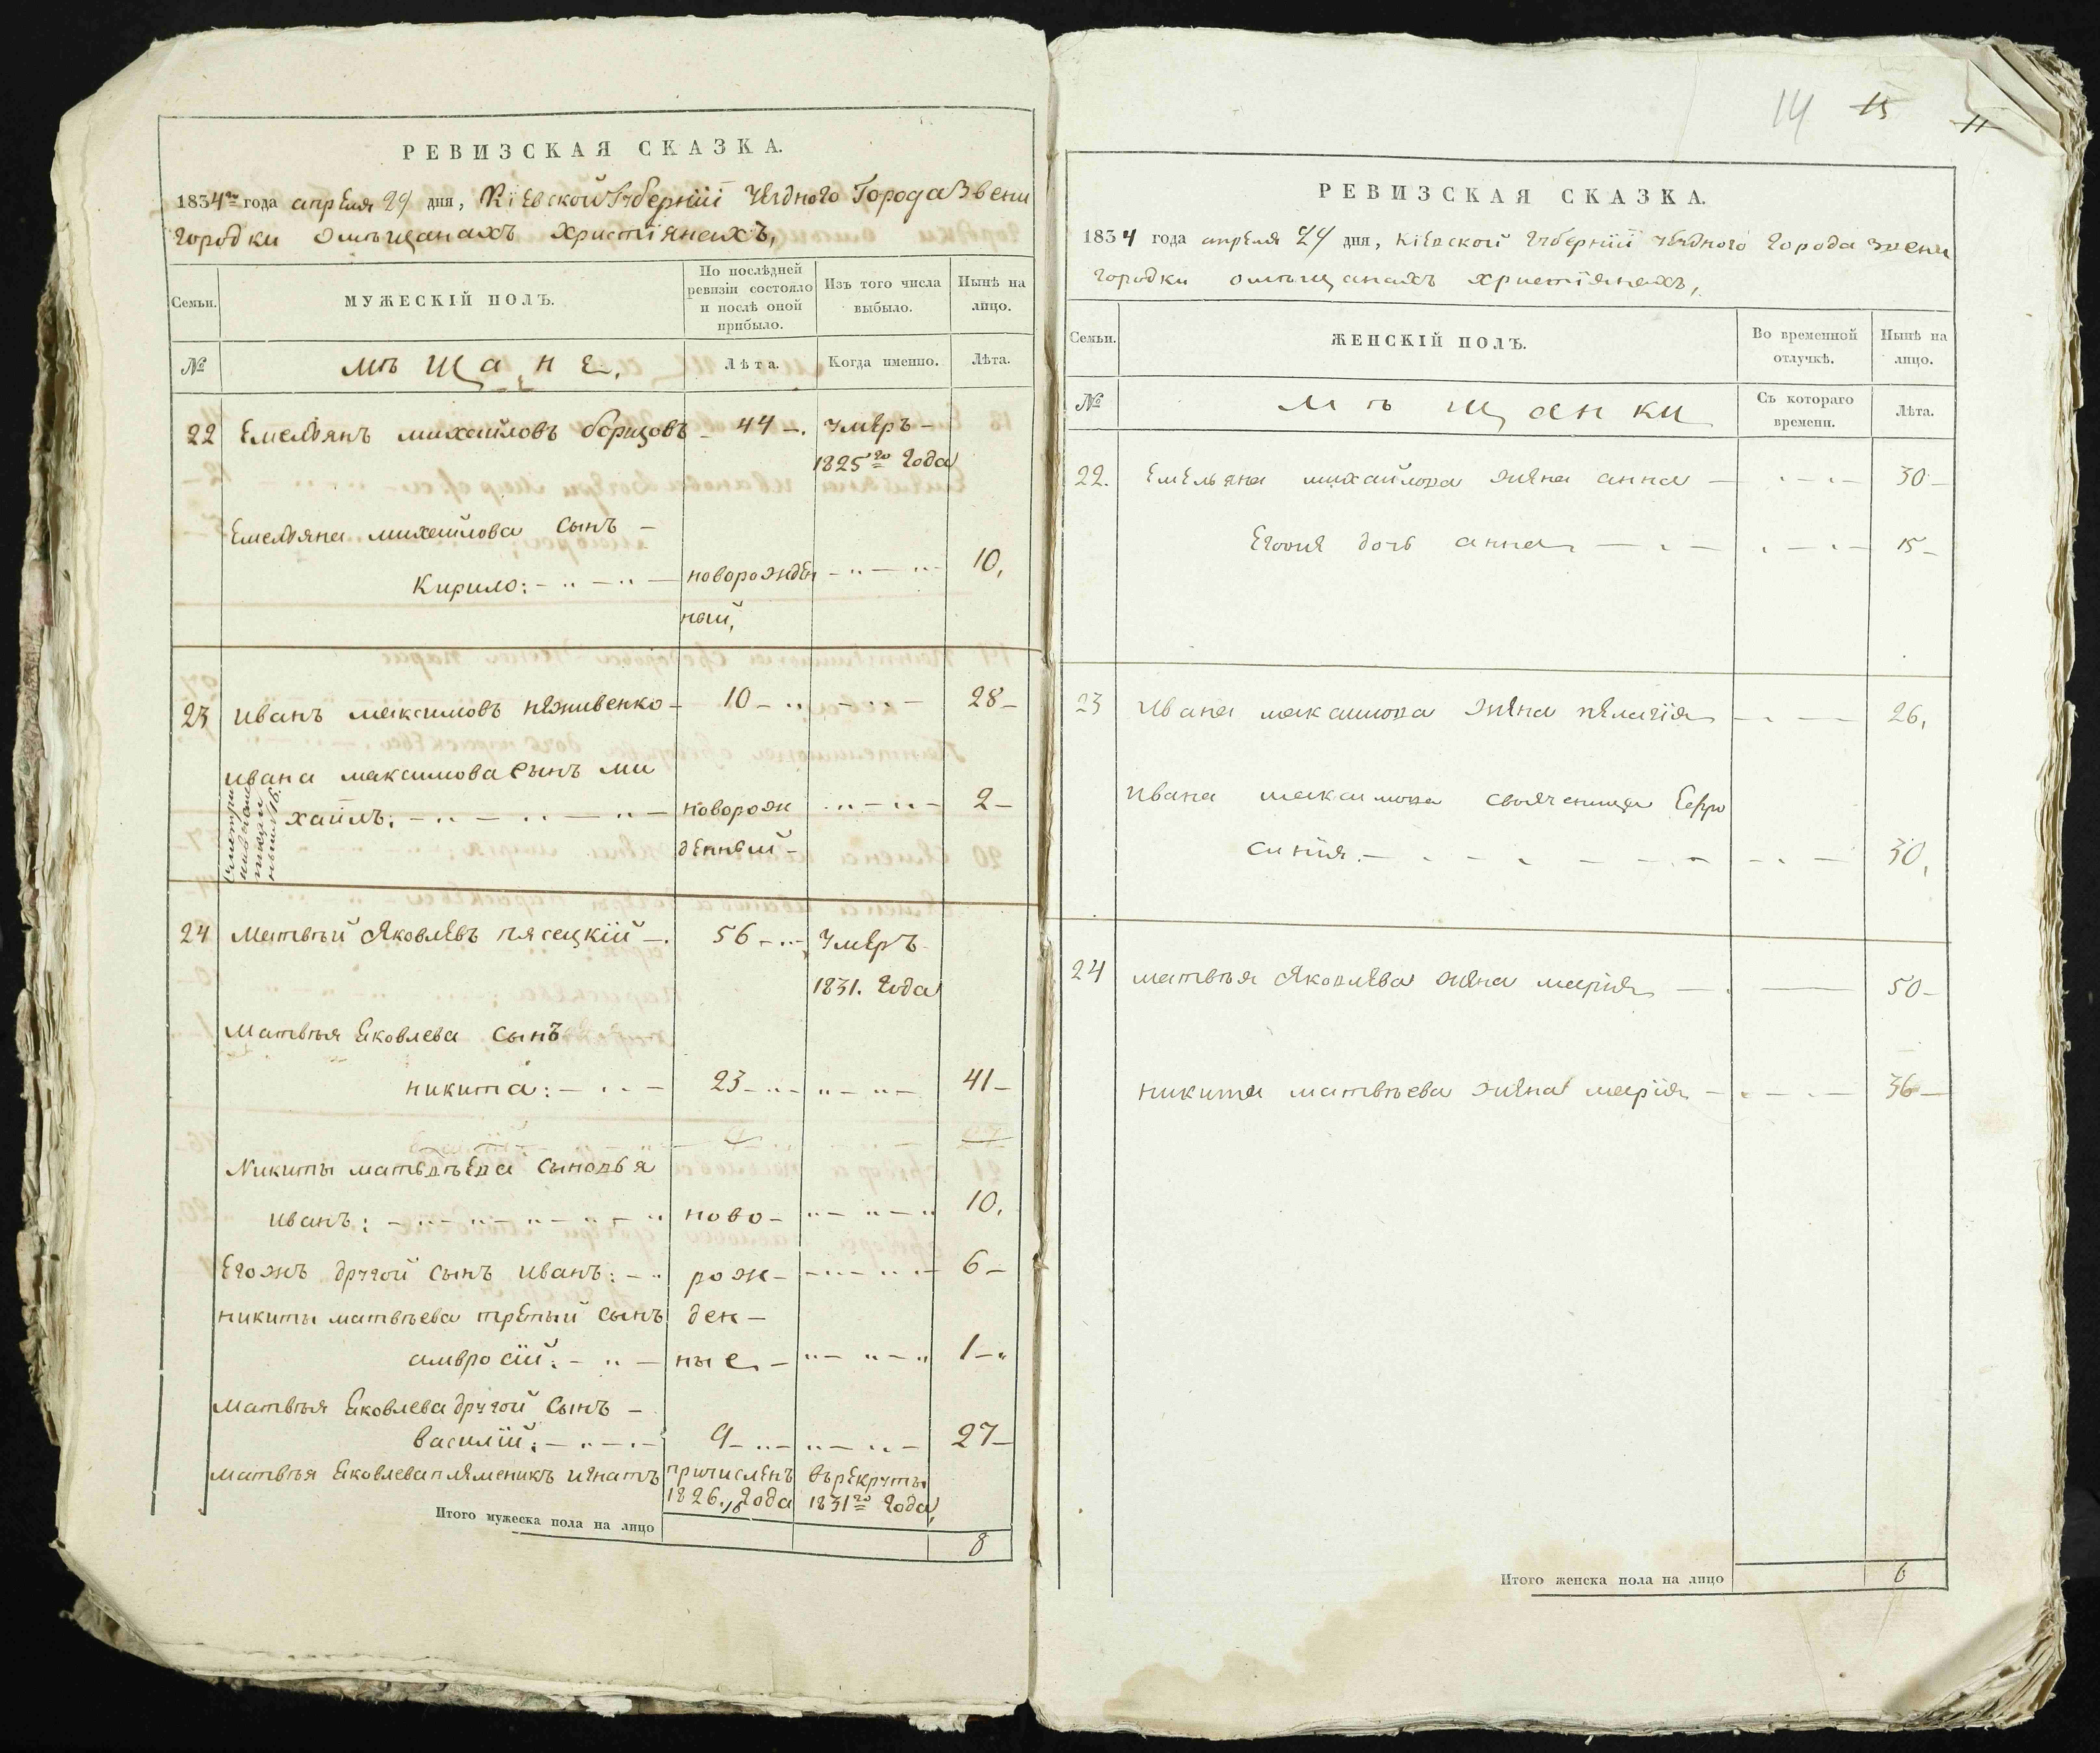 РЕВИЗСКАЯ СКАЗКА.
1834го года апреля 29 дня, Кіевской Губерніи Уѣздного Города Звени
городки омѣщанахъ христіянахъ,
Семьи.
МУЖЕСКІЙ ПОЛЪ.
По послѣдней ревизіи состояло и послѣ оной прибыло.
Изъ того числа выбыло.
Нынѣ на лицо.
№
мѣщане.
Лѣта.
Когда именно.
Лѣта.
22 Емельянъ михайловъ борщовъ – 44 –. умеръ –
1825го года
Емельяна михайлова сынъ –
Кирило: новорожден 10,
ный,
23 иванъ максимовъ неживенко – 10 – 28 –
ивана максимова сынъ ми
хаилъ: новорож 2 –
денный –
24 Матвѣй Яковлевъ пясецкій –. 56 – умеръ
1831. года
Матвѣя Яковлева сынъ
никита: – 23 – 41 –
Никиты матвѣева сыновья
иванъ: ново – 10.
Егожъ другой сынъ иванъ: – рож – 6 –
никиты матвѣева третый сынъ ден –
амвросій: – ные – 1 –
Матвѣя Яковлева другой сынъ –
василій: – 9 – 27 –
матвѣя Яковлева племеникъ игнатъ причисленъ върекруты
1826. года 1831го года,
Итого мужеска пола на лицо 8
14 15 11
РЕВИЗСКАЯ СКАЗКА.
1834 года апреля 29 дня, Кіевской губерніи уѣздного города звени
городки омѣщанахъ христіянахъ,
Семьи.
ЖЕНСКІЙ ПОЛЪ.
Во временной отлучкѣ.
Нынѣ на лицо.
№
мѣщанки
Съ котораго времени.
Лѣта.
22. Емельяна михайлова жена анна – 30 –
Егоже дочь анна 15 –
23 ивана максимова жена пелагія 26,
ивана максимова своячница Евфро
синія. – 30,
24 матвѣя Яковлева жена марія – 50 –
никиты матвѣева жена марія – 36 –
Итого женска пола на лицо 6